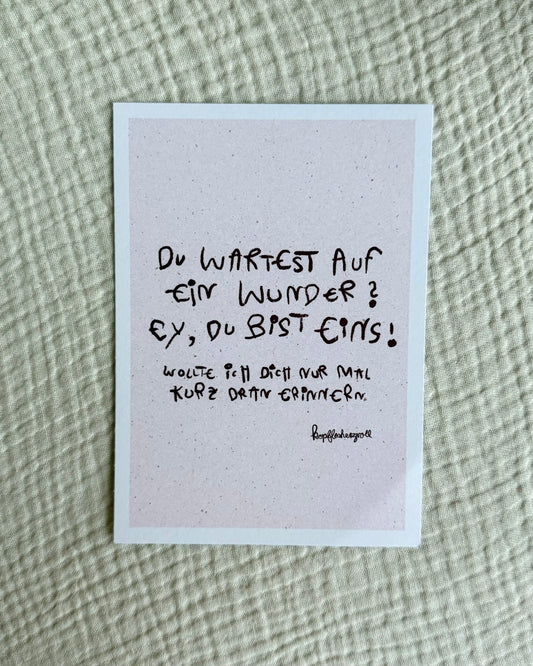 DU WARTEST AUF
EIN WUNDER?
EY, DU BIST EINS!
WOLLTE ICH DICH NUR MAL
KURZ DRAN ERINNERN.